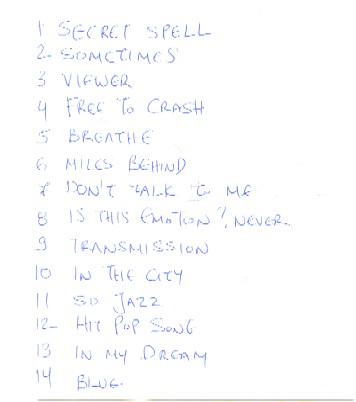 1 SECRET SPELL
2- SOMETIMES
3 VIEWER
4 FREE TO CRASH
5 BREATHE
6 MILES BEHIND
7 DON'T TALK TO ME
8 IS THIS EMOTION?, NEVER.
9 TRANSMISSION
10 IN THE CITY
11 SO JAZZ
12- HIT POP SONG
13 IN MY DREAM
14 BLUE.